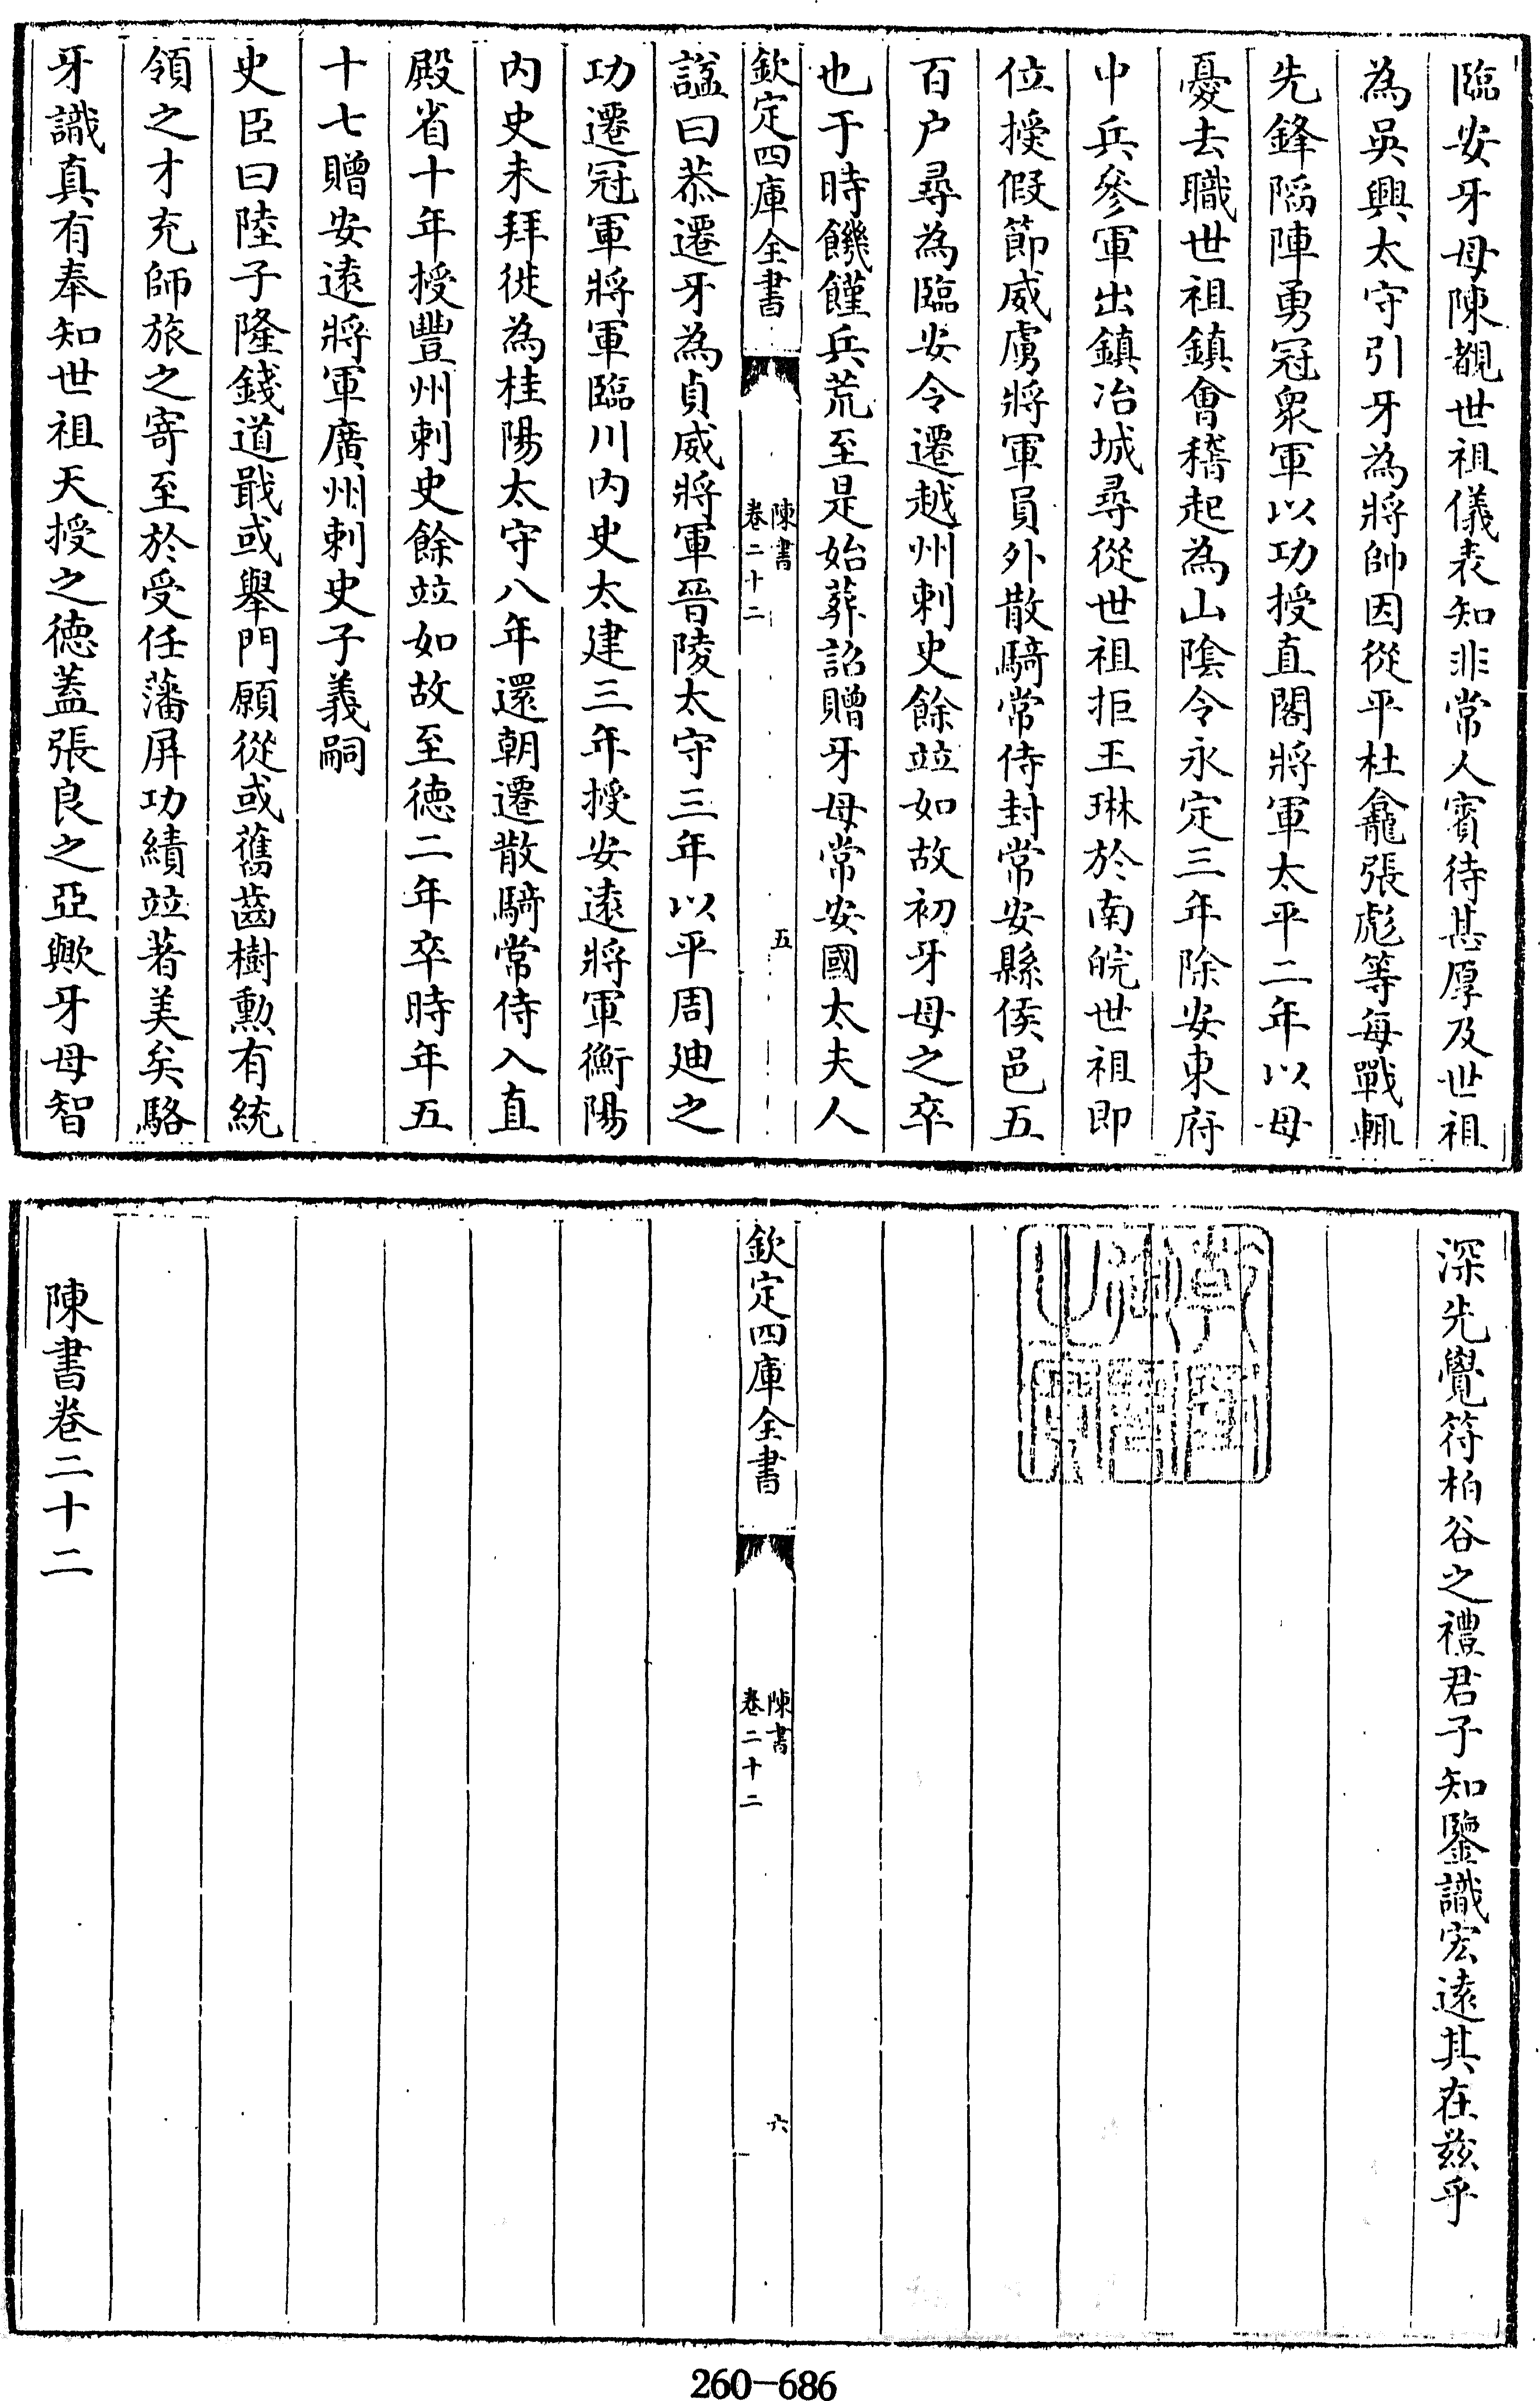 臨安牙母陳覩世祖儀表知非常人賓待甚厚及世祖
為吳興太守引牙為將帥因從平杜龕張彪等每戰輒
先鋒陷陣勇冠衆軍以功授直閣將軍太平二年以母
憂去職世祖鎮會稽起為山陰令永定三年除安東府
中兵參軍出鎮冶城尋從世祖拒王琳於南皖世祖即
位授假節威虜將軍員外散騎常侍封常安縣侯邑五
百户尋為臨安令遷越州刺史餘竝如故初牙母之卒
也于時饑饉兵荒至是始葬詔贈牙母常安國太夫人
欽定四庫全書
陳書
卷二十二
五
諡曰恭遷牙為貞威將軍晉陵太守三年以平周迪之
功遷冠軍將軍臨川内史太建三年授安逺將軍衡陽
内史未拜徙為桂陽太守八年還朝遷散騎常侍入直
殿省十年授豐州刺史餘竝如故至徳二年卒時年五
十七贈安逺將軍廣州刺史子義嗣
史臣曰陸子隆錢道戢或舉門願從或舊齒樹勲有統
領之才充師旅之寄至於受任藩屏功績竝著美矣駱
牙識真有奉知世祖天授之徳蓋張良之亞歟牙母智
深先覺符柏谷之禮君子知鑒識宏逺其在兹乎
欽定四庫全書
陳書
卷二十二
六
陳書卷二十二
260-686